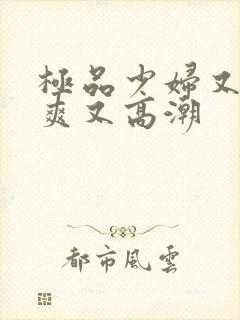 極品少婦又
爽又高潮
都市風雲